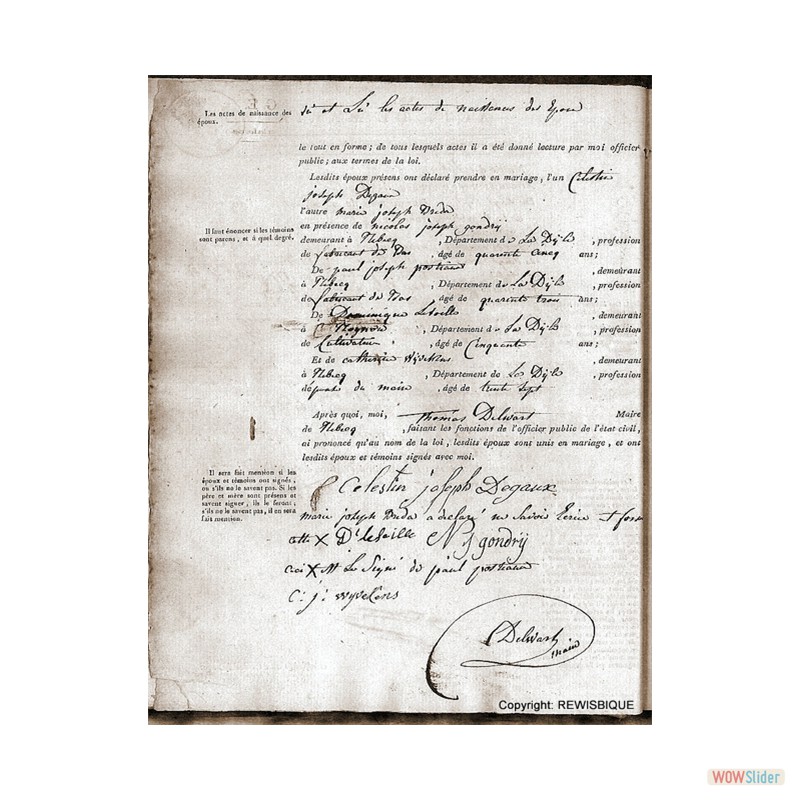 Les actes de naissance des
époux.
vu et Lu les actes de naissences des Epoux
le tout en forme ; de tous lesquels actes il a été donné lecture par moi officier
public ; aux termes de la loi.
Lesdits époux présens ont déclaré prendre en mariage, l'un Célestin
joseph Degaux
l'autre marie joseph
Il faut énoncer si les témoins
sont parens, et à quel degré.
en présence de nicolas joseph gondrÿ
demeurant à Rebecq , Département de La Dÿle , profession
de fabricant de Bas âgé de quarente Cincq ans ;
De paul joseph , demeurant
à Rebecq , Département de La Dÿle , profession
de fabricant de Bas âgé de quarente trois ans ;
De Dominique , demeurant
à , Département de La Dÿle , profession
de Cultivateur , âgé de Cinquante ans ;
Et de catherine , demeurant
à Rebecq , Département de La Dÿle , profession
de du maire , âgé de trente Sept
Après quoi, moi, Thomas Delwart Maire
de Rebecq , faisant les fonctions de l'officier public de l'état civil,
ai prononcé qu'au nom de la loi, lesdits époux sont unis en mariage, et ont
lesdits époux et témoins signés avec moi.
Il sera fait mention si les
époux et témoins ont signés,
ou s'ils ne le savent pas. Si les
père et mère sont présens et
savent signer, ils le feront ;
s'ils ne le savent pas, il en sera
fait mention.
Celestin joseph Degaux
marie joseph a declaré ne Savoir Ecrire
X N J gondrÿ
X Le Signé de paul
C: j: wyvekens
Delwart
maire
Copyright: REWISBIQUE
WOWSlider